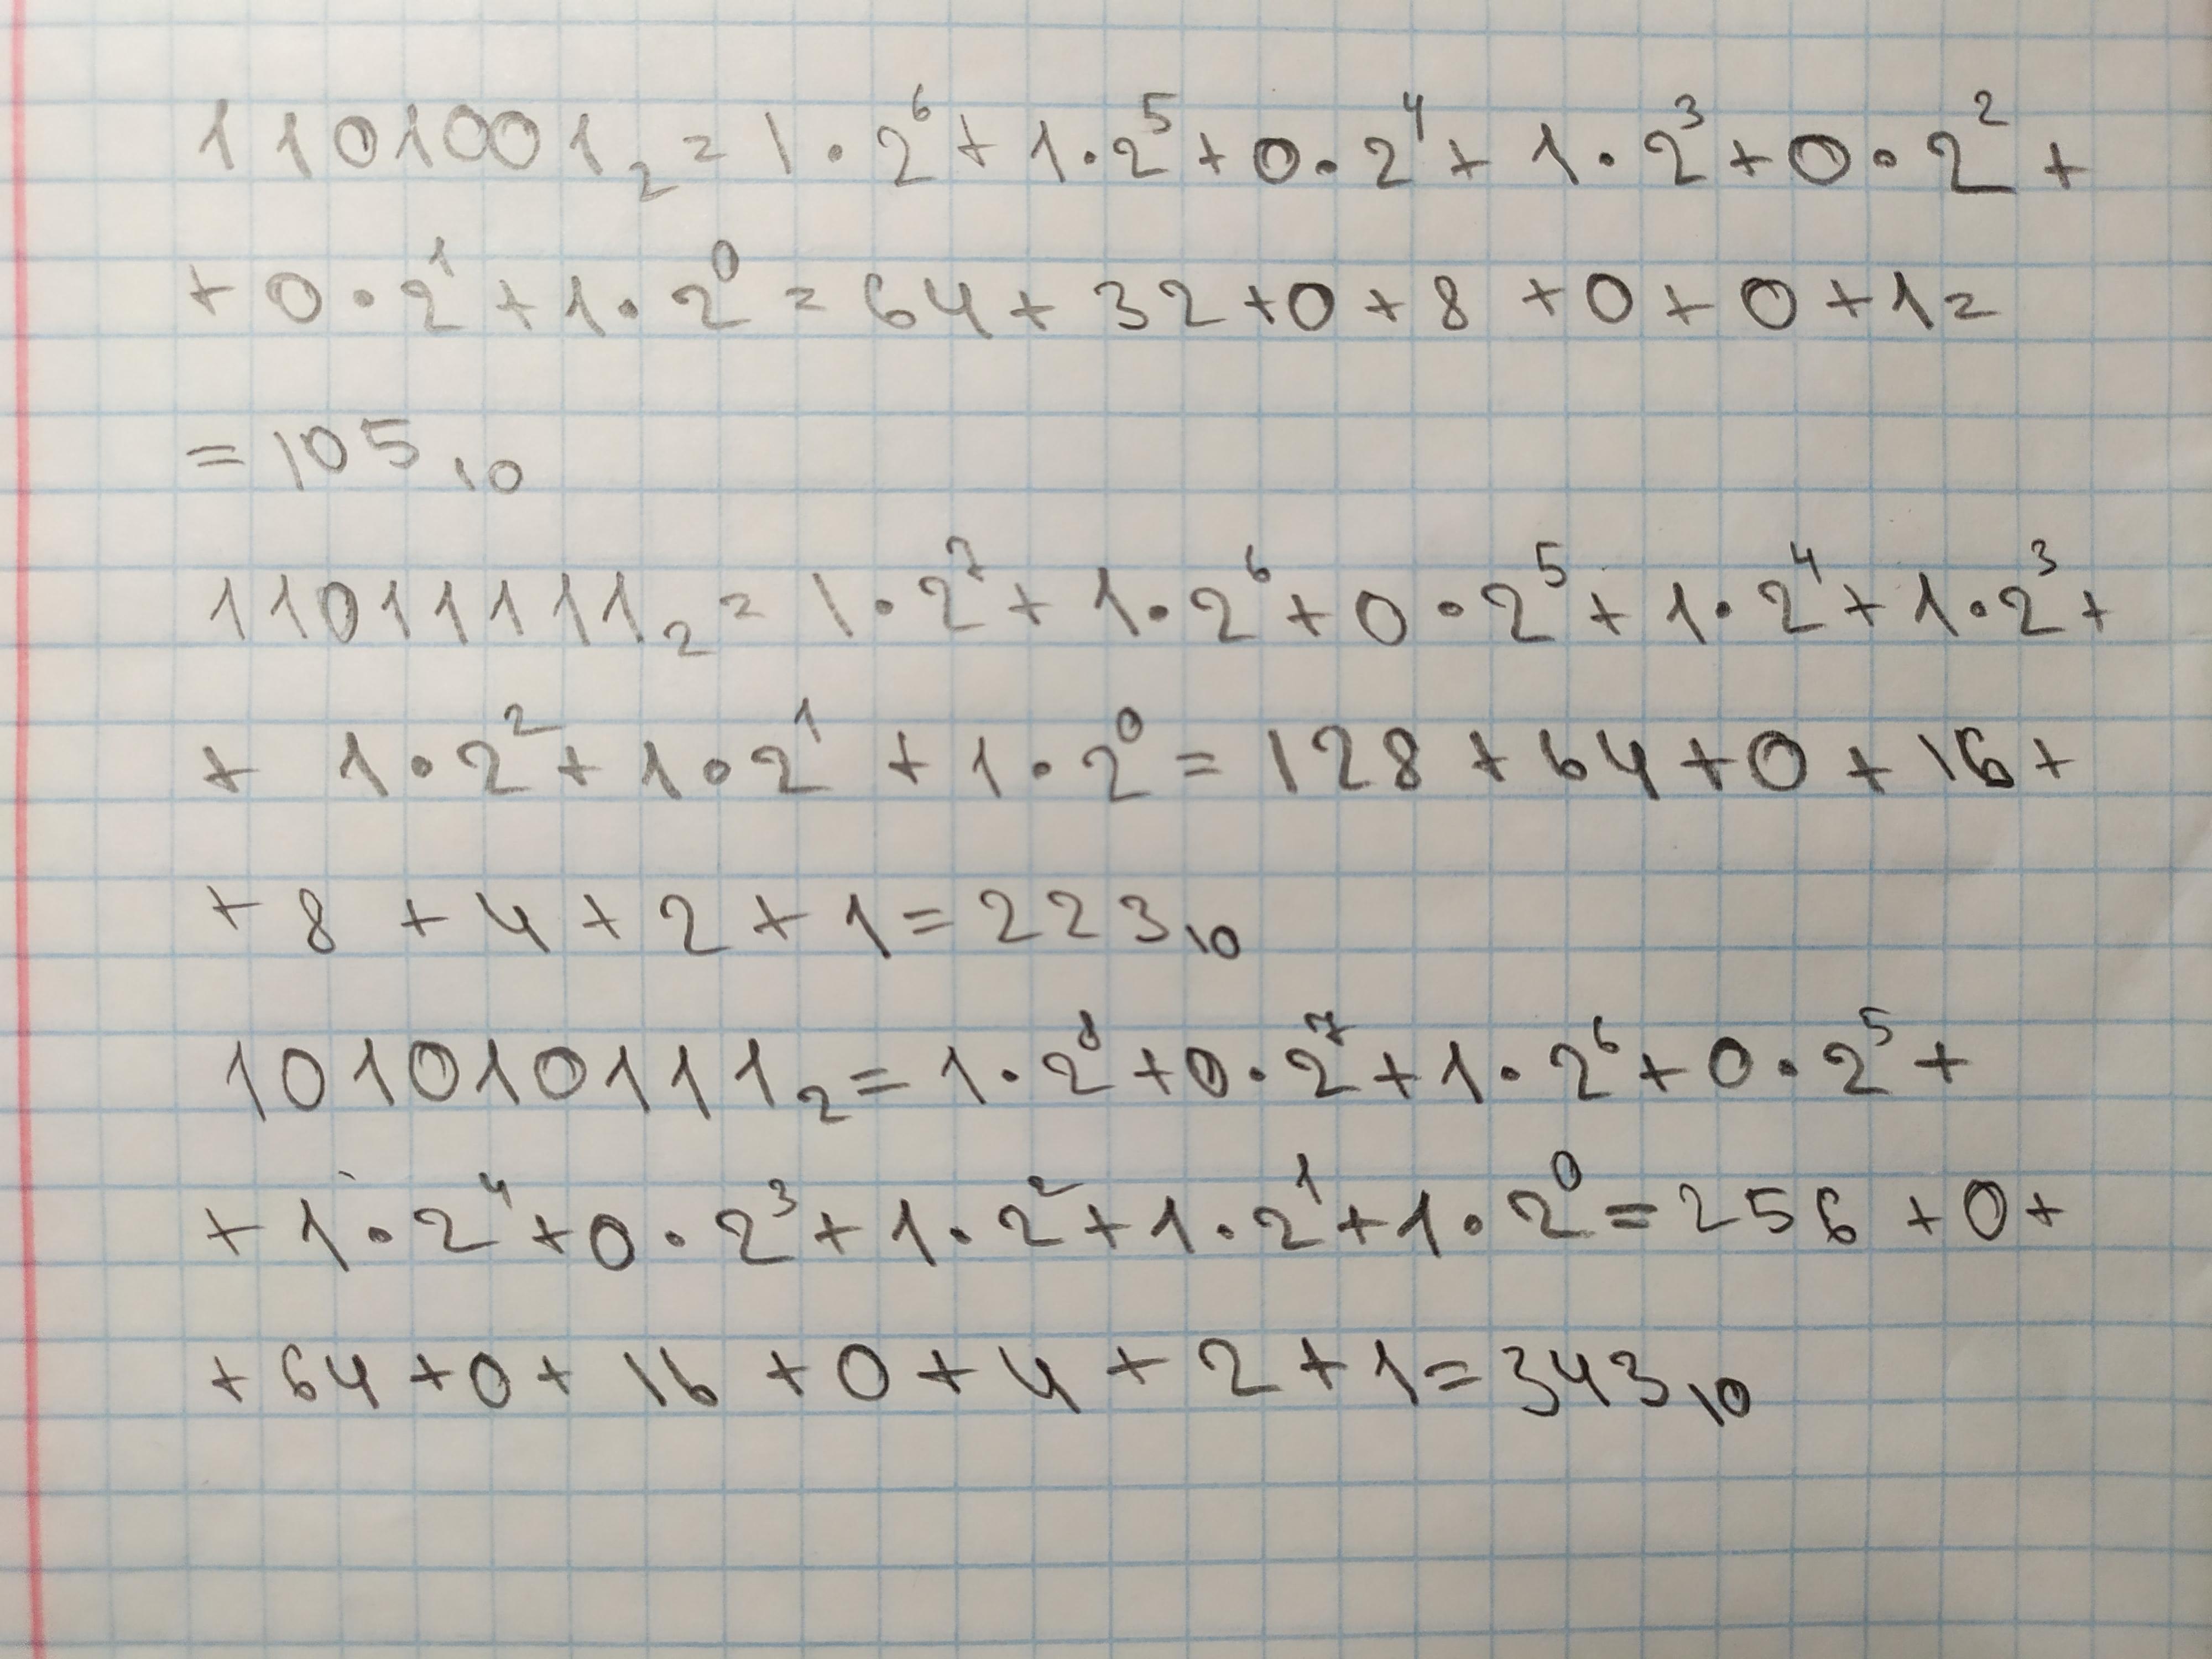 1101001₂ = 1·2⁶ + 1·2⁵ + 0·2⁴ + 1·2³ + 0·2² +
+ 0·2¹ + 1·2⁰ = 64 + 32 + 0 + 8 + 0 + 0 + 1 =
= 105₁₀
11011111₂ = 1·2⁷ + 1·2⁶ + 0·2⁵ + 1·2⁴ + 1·2³ +
+ 1·2² + 1·2¹ + 1·2⁰ = 128 + 64 + 0 + 16 +
+ 8 + 4 + 2 + 1 = 223₁₀
101010111₂ = 1·2⁸ + 0·2⁷ + 1·2⁶ + 0·2⁵ +
+ 1·2⁴ + 0·2³ + 1·2² + 1·2¹ + 1·2⁰ = 256 + 0 +
+ 64 + 0 + 16 + 0 + 4 + 2 + 1 = 343₁₀